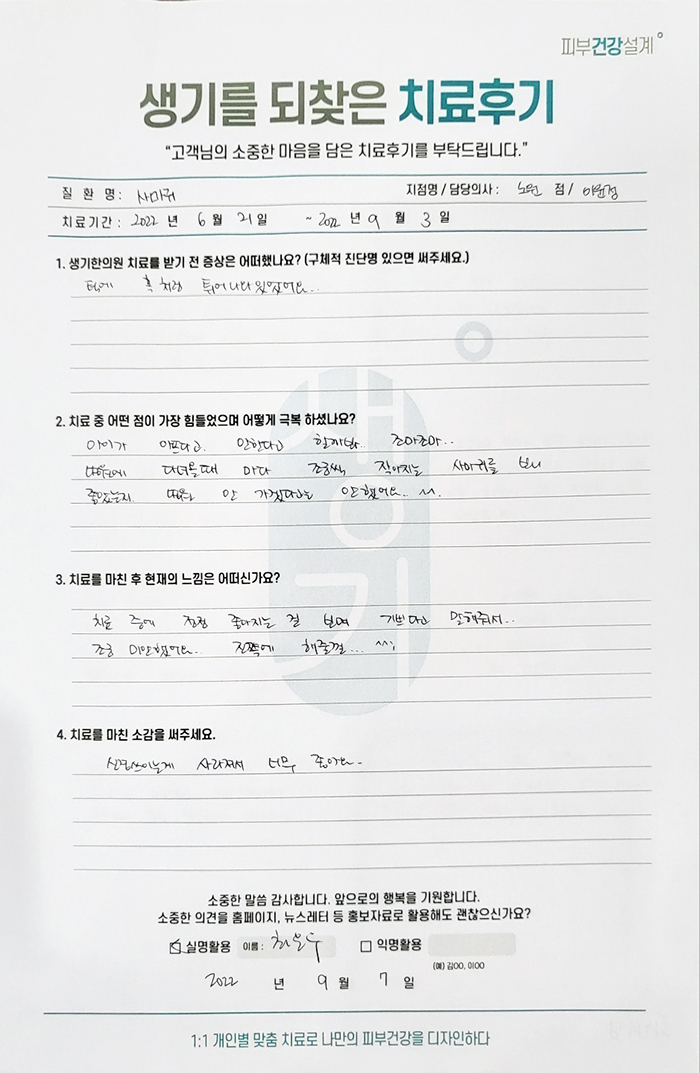 피부건강설계
생기를 되찾은 치료후기
“고객님의 소중한 마음을 담은 치료후기를 부탁드립니다.”
질 환 명 : 사마귀 지점명 / 담당의사 : 노원 점 / 이윤정
치료기간 : 2022 년 6 월 21 일 ~ 2022 년 9 월 3 일
1. 생기한의원 치료를 받기 전 증상은 어떠했나요? (구체적 진단명 있으면 써주세요.)
턱에 혹 처럼 튀어나와 있었어요..
2. 치료 중 어떤 점이 가장 힘들었으며 어떻게 극복 하셨나요?
아이가 아프다고 안한다고 할까봐.. 조마조마..
다녀올때 마다 조금씩 작아지는 사마귀를 보니
좋았는지 안 가겠다고는 안했어요.. ^^.
3. 치료를 마친 후 현재의 느낌은 어떠신가요?
치료 중에 점점 좋아지는 걸 보며 기쁘다고 말해줘서..
조금 미안했어요.. 진작에 해줄걸... ^^;
4. 치료를 마친 소감을 써주세요.
신경쓰이는게 사라져서 너무 좋아요.
소중한 말씀 감사합니다. 앞으로의 행복을 기원합니다.
소중한 의견을 홈페이지, 뉴스레터 등 홍보자료로 활용해도 괜찮으신가요?
실명활용 이름 : 익명활용
(예) 김OO, 이OO
2022 년 9 월 7 일
생기
1:1 개인별 맞춤 치료로 나만의 피부건강을 디자인하다